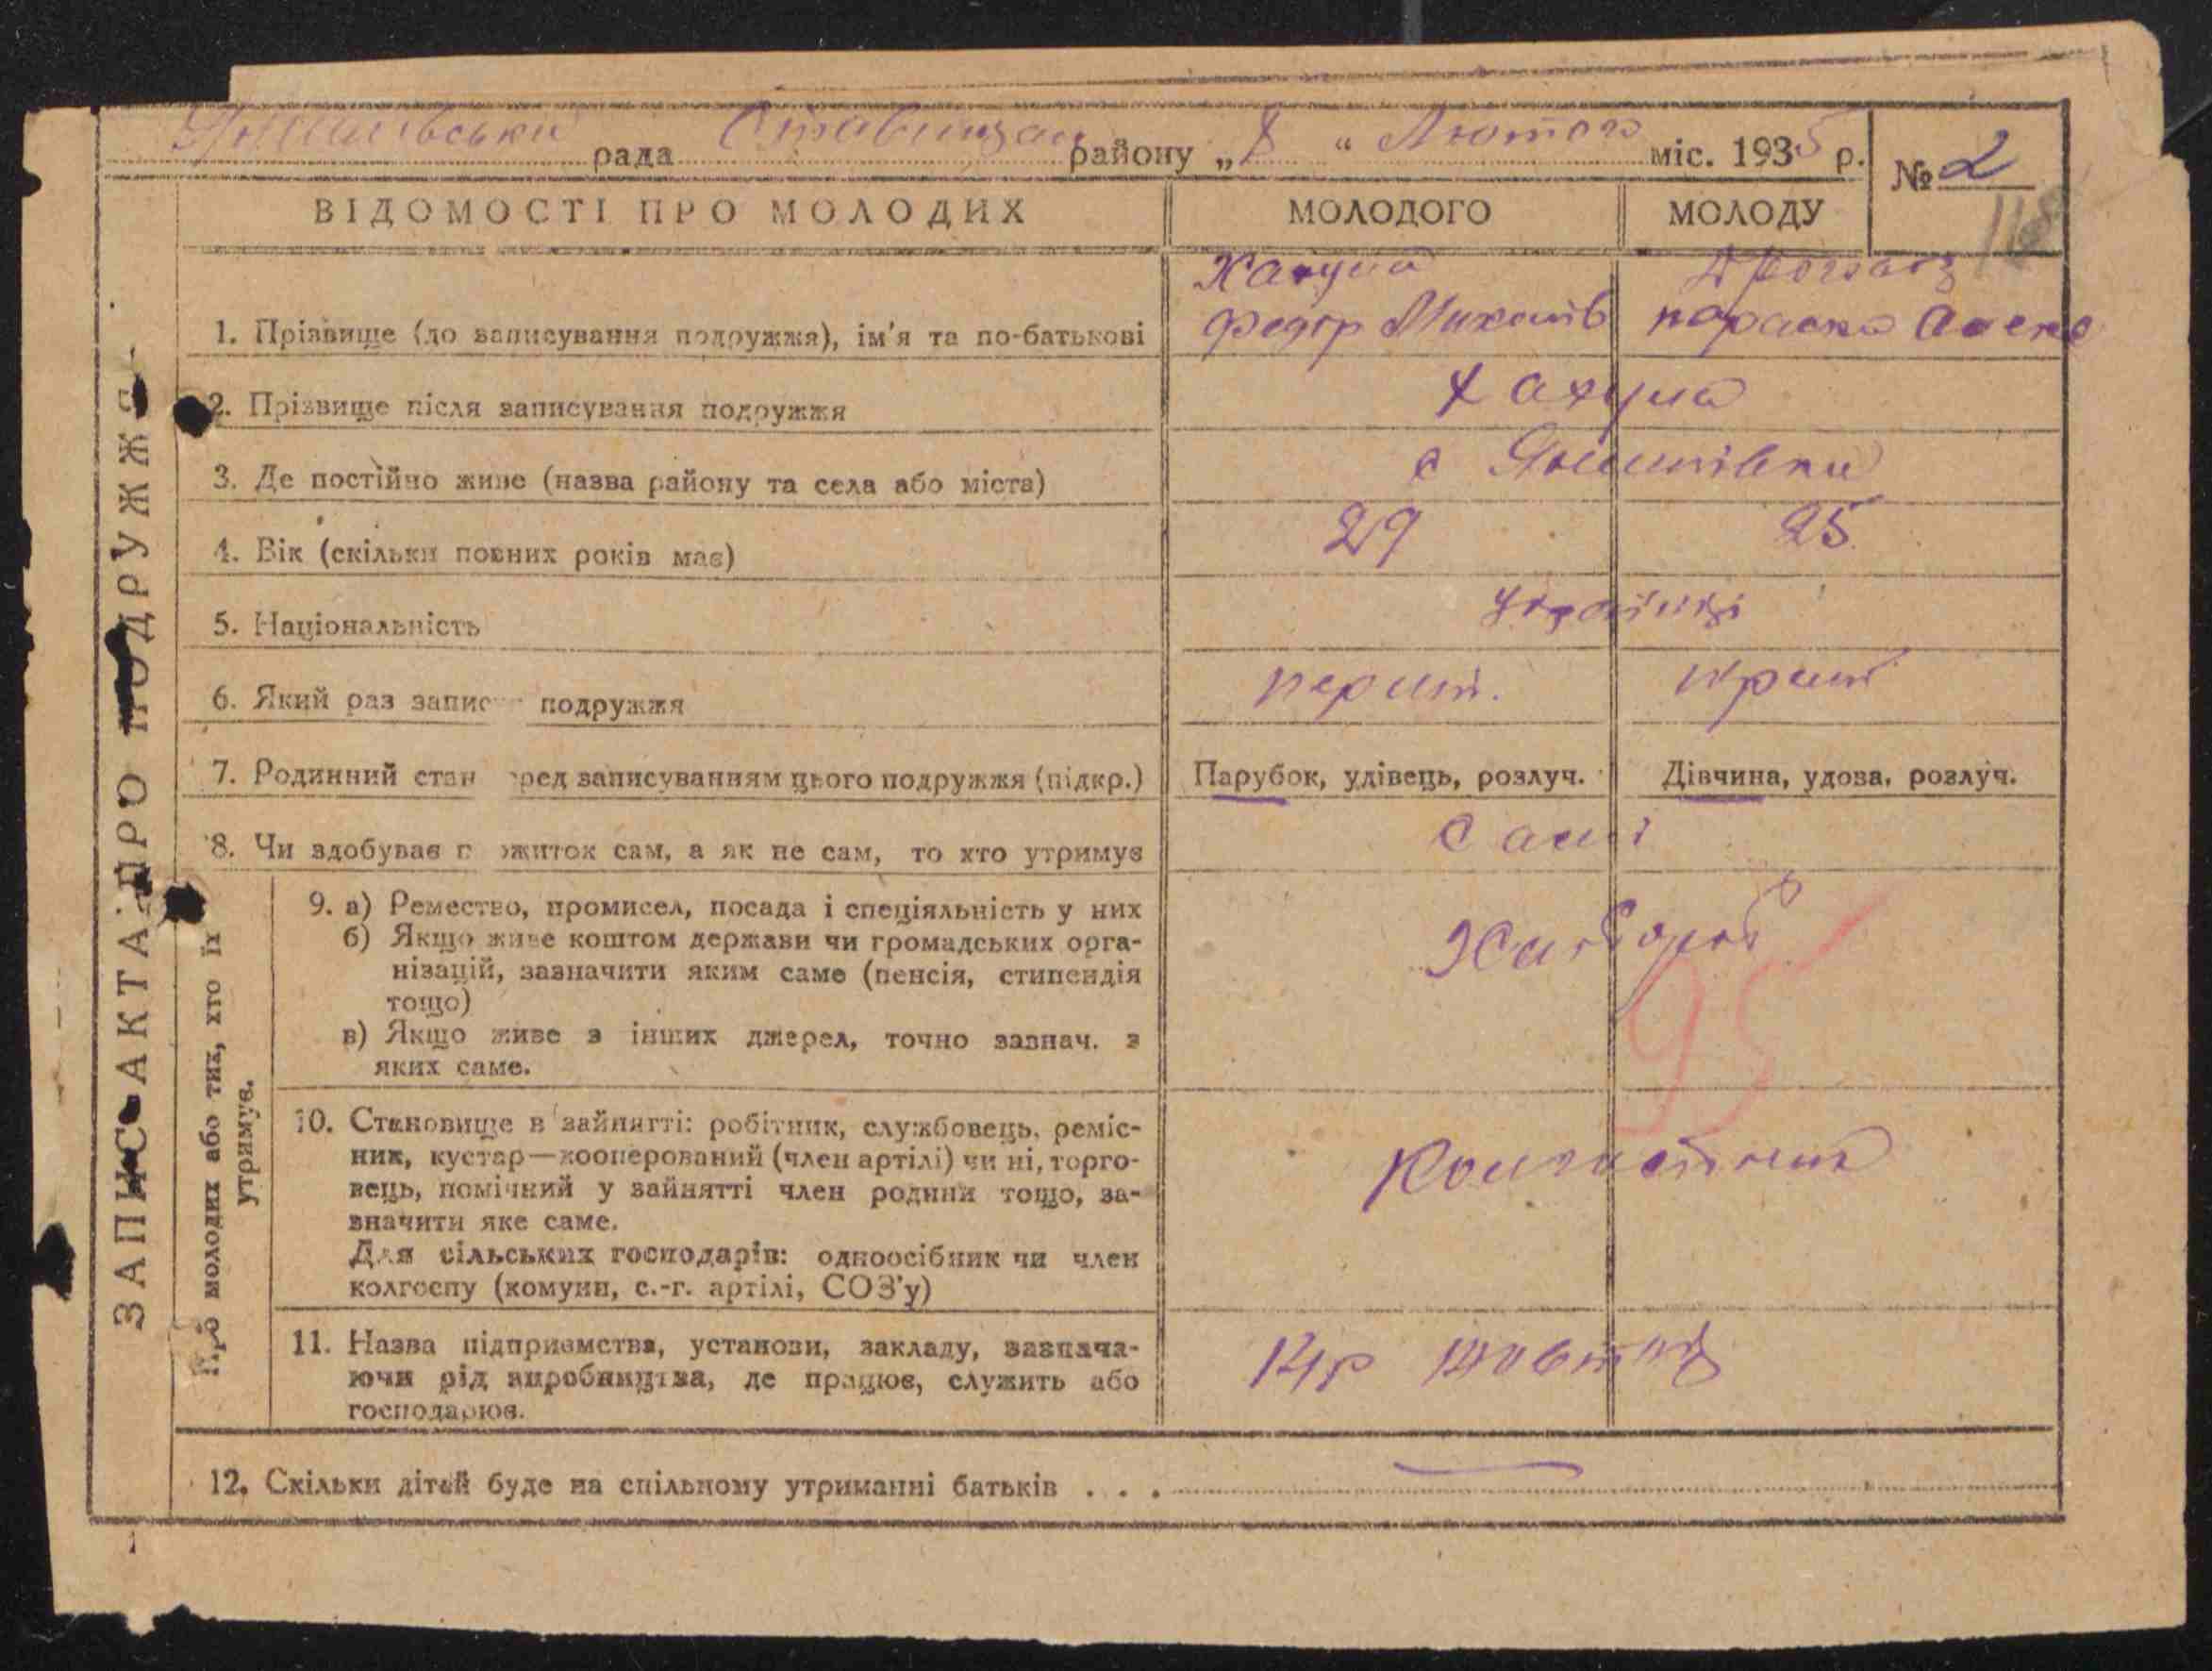 рада Ставищан району „8“ Лютого міс. 1935 р.
№ 2
ВІДОМОСТІ ПРО МОЛОДИХ
МОЛОДОГО
МОЛОДУ
ЗАПИС АКТА ПРО ПОДРУЖЖЯ
1. Прізвище (до записування подружжя), ім'я та по-батькові
Федір Михайлів
Параска Олекс
2. Прізвище після записування подружжя
3. Де постійно живе (назва району та села або міста)
с
4. Вік (скільки повних років має)
29
25
5. Національність
Українці
6. Який раз запис подружжя
перший.
7. Родинний стан перед записуванням цього подружжя (підкр.)
Парубок, удівець, розлуч.
Дівчина, удова, розлуч.
8. Чи здобуває прожиток сам, а як не сам, то хто утримує
Самі
Про молодих або тих, хто їх утримує.
9. а) Ремество, промисел, посада і спеціяльність у них
б) Якщо живе коштом держави чи громадських орга-
нізацій, зазначити яким саме (пенсія, стипендія
тощо)
в) Якщо живе з інших джерел, точно зазнач. з
яких саме.
Хлібороб
95
10. Становище в зайнятті: робітник, службовець, реміс-
ник, кустар—кооперований (член артілі) чи ні, торго-
вець, помічний у зайнятті член родини тощо, за-
значити яке саме.
Для сільських господарів: одноосібник чи член
колгоспу (комуни, с.-г. артілі, СОЗ'у)
11. Назва підприємства, установи, закладу, зазнача-
ючи рід виробництва, де працює, служить або
господарює.
Жовтня
12. Скільки дітей буде на спільному утриманні батьків . . .